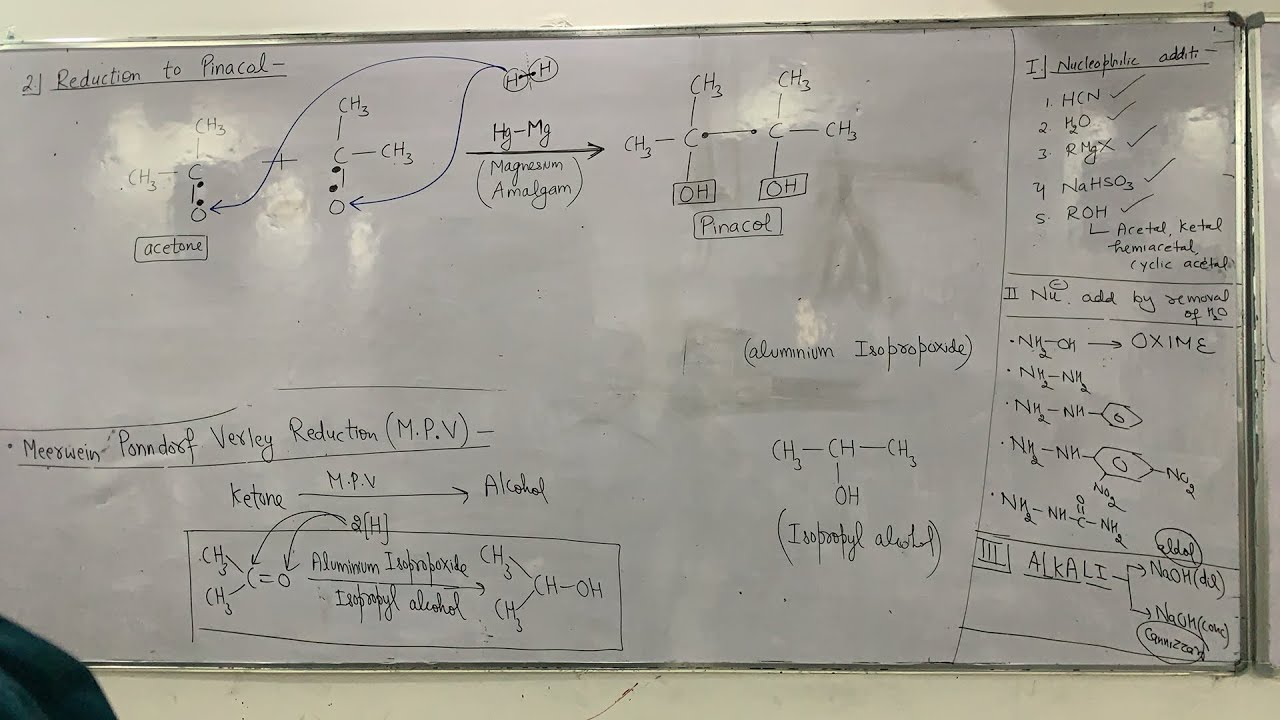 2] Reduction to Pinacol -
H - H
CH3
CH3 - C
O
+
CH3
C - CH3
O
acetone
Hg-Mg
(Magnesium
Amalgam)
CH3 CH3
CH3 - C - C - CH3
OH OH
Pinacol
(aluminium Isopropoxide)
• Meerwein Ponndorf Verley Reduction (M.P.V) -
Ketone M.P.V → Alcohol
2[H]
CH3
C=O
CH3
Aluminium Isopropoxide
Isopropyl alcohol
CH3
CH-OH
CH3
CH3-CH-CH3
OH
(Isopropyl alcohol)
I] Nucleophilic additi -
1. HCN ✓
2. H2O ✓
3. RMgX ✓
4 NaHSO3 ✓
5. ROH ✓
Acetal, Ketal
hemiacetal,
cyclic acetal
II Nu⊖ add by removal
of H2O
• NH2-OH → OXIME
• NH2-NH2
• NH2-NH-
• NH2-NH- NO2
NO2
O
• NH2-NH-C-NH2
aldol
III ALKALI
NaOH(dil)
NaOH(conc)
Cannizzaro